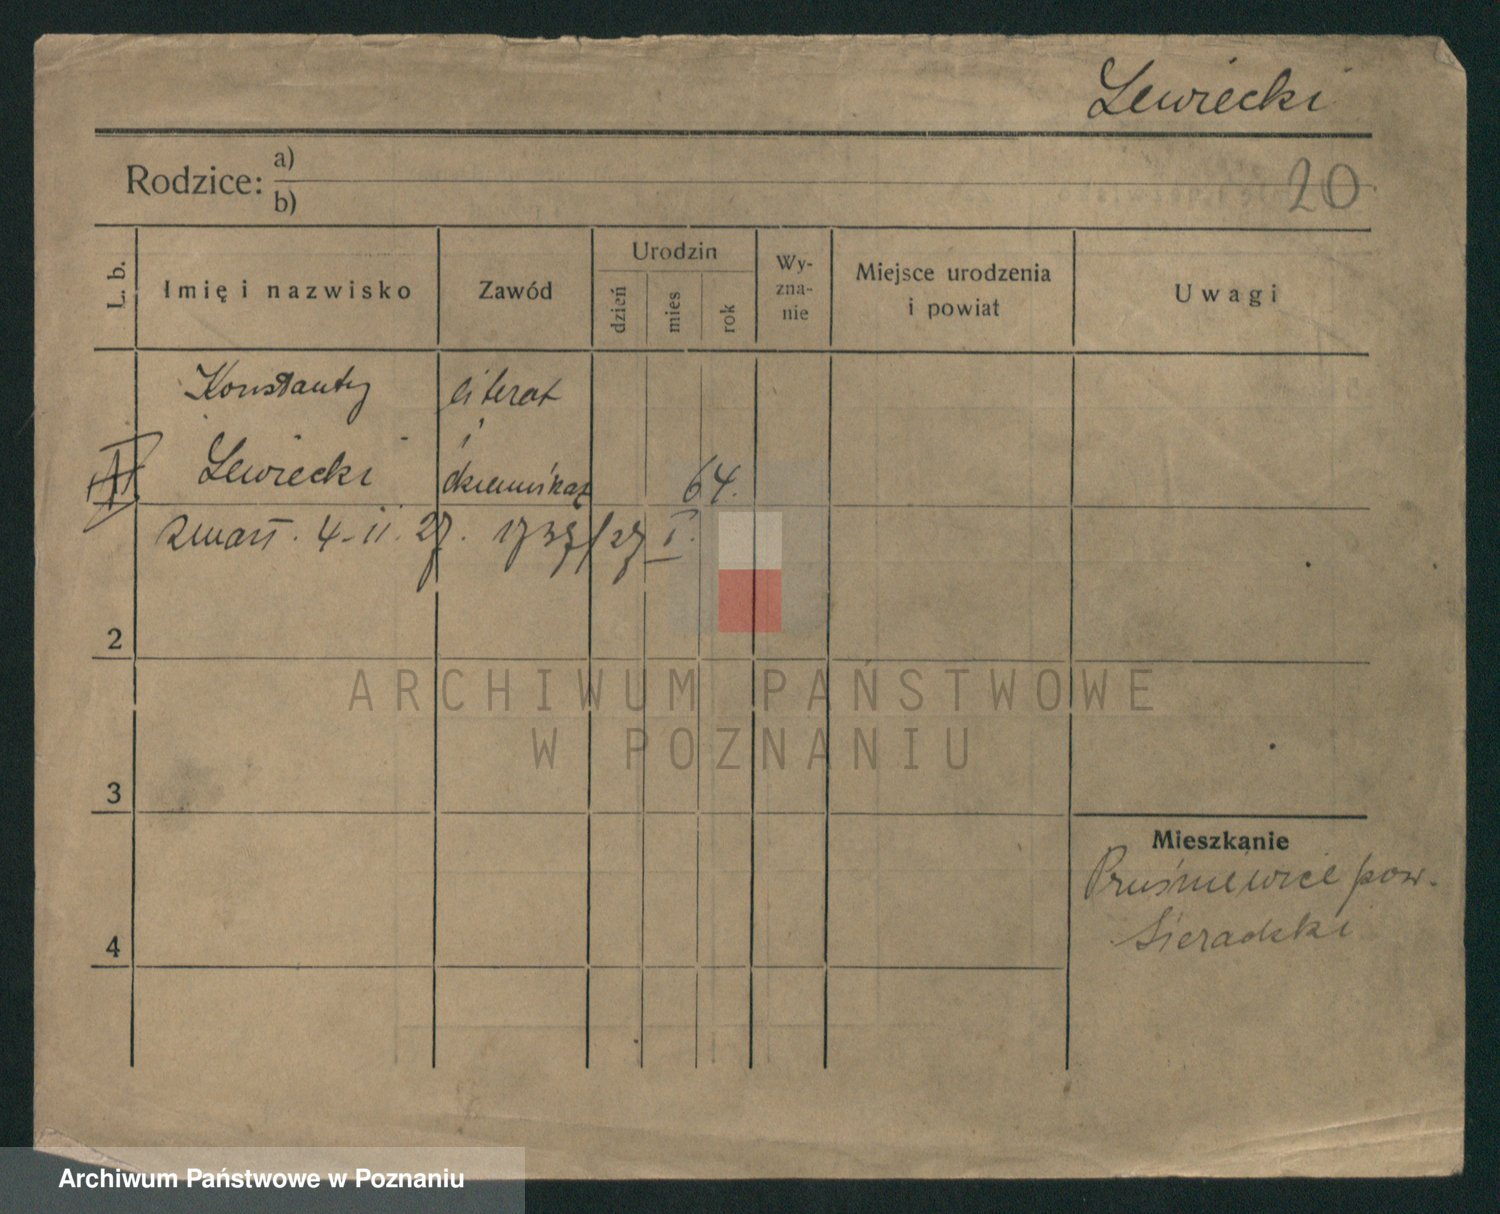 Lewiecki
Rodzice: a)
b)
20
L. b.
Imię i nazwisko
Zawód
Urodzin
dzień
mies
rok
Wy-
zna-
nie
Miejsce urodzenia
i powiat
Uwagi
Konstanty
literat
i
Lewiecki
64.
zmarł. 4-II. 27. 1737/27 I.
2
ARCHIWUM PAŃSTWOWE
W POZNANIU
3
Mieszkanie
Pruśniewice pow.
Sieradzki
4
Archiwum Państwowe w Poznaniu